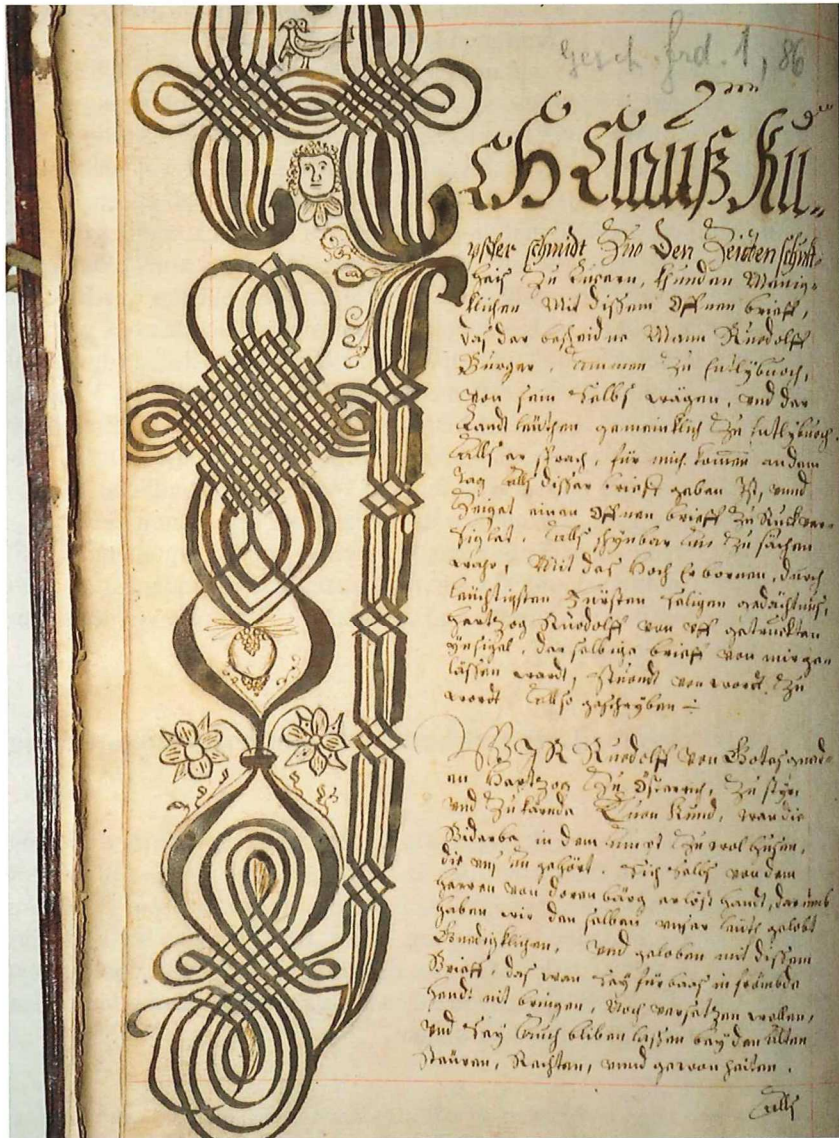 Gesch. frd. 1, 86
Von
Ich Clauß Ku-
pffer schmidt Zuo den Zeitten schult-
heis Zu Lucern, khunden Mänig-
klichen Mit dissem Offnen brieff,
das der bescheidne Mann Ruodolff
Burger, Amman Zu Entlybuoch,
von sein selbs wägen, und der
Landt leüthen gemeinklich Zu Entlybuoch.
Alls er sprach, für mich komen an dem
tag alls disser brieff geben ist, vnnd
Zeiget einen Offnen brieff Zu Ruckh ver-
siglet, alls schynbar Zu sächen
wahr, Mit des Hoch Erbornen, durch
leüchtigsten Fürsten seligen gedächtnus,
Hertzog Ruodolff von vff getruckten
ynsigel, der selbige brieff von mir ge-
lässen wardt, Stuondt von wordt, Zu
wordt Allso geschryben ÷
WIR Ruodolff von Gotes gnad-
en Hertzog Zu Österrich, Zu styr,
vnd Zu kärnde Tuon kund, wan die
Biderbe in dem ampt Zu wolhusen,
die vns an gehört. Sich selbs von dem
herren von doren bärg erlöst handt, darumb
haben wir den selben vnser leüth gelobt
Gnedigklichen, vnd geloben mit dissem
Brieff, das wir sey fürbas in frömbde
handt nit bringen, Noch versetzen wellen,
vnd sey Auch bliben lassen bey den alten
Steüren, Rechten, vnnd gewonheiten.
Alls